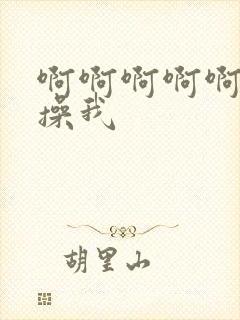 啊啊啊啊啊
操我
胡里山